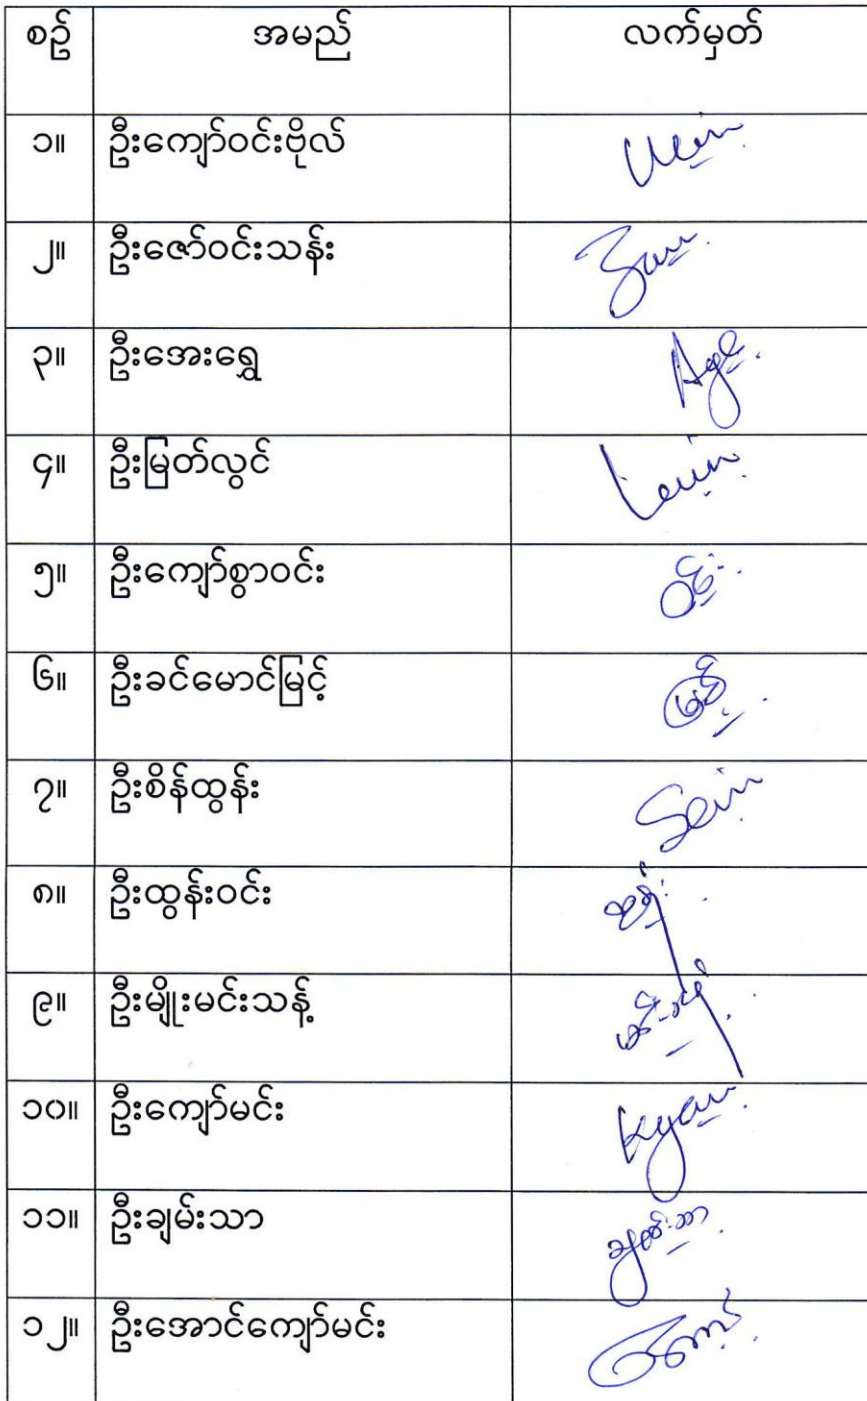 စဉ် အမည် လက်မှတ်
၁။ ဦးကျော်ဝင်းဗိုလ်
၂။ ဦးဇော်ဝင်းသန်း
၃။ ဦးအေးရွှေ
၄။ ဦးမြတ်လွင်
၅။ ဦးကျော်စွာဝင်း
၆။ ဦးခင်မောင်မြင့်
၇။ ဦးစိန်ထွန်း Sein
၈။ ဦးထွန်းဝင်း
၉။ ဦးမျိုးမင်းသန့်
၁၀။ ဦးကျော်မင်း Kyaw
၁၁။ ဦးချမ်းသာ ချမ်းသာ
၁၂။ ဦးအောင်ကျော်မင်း